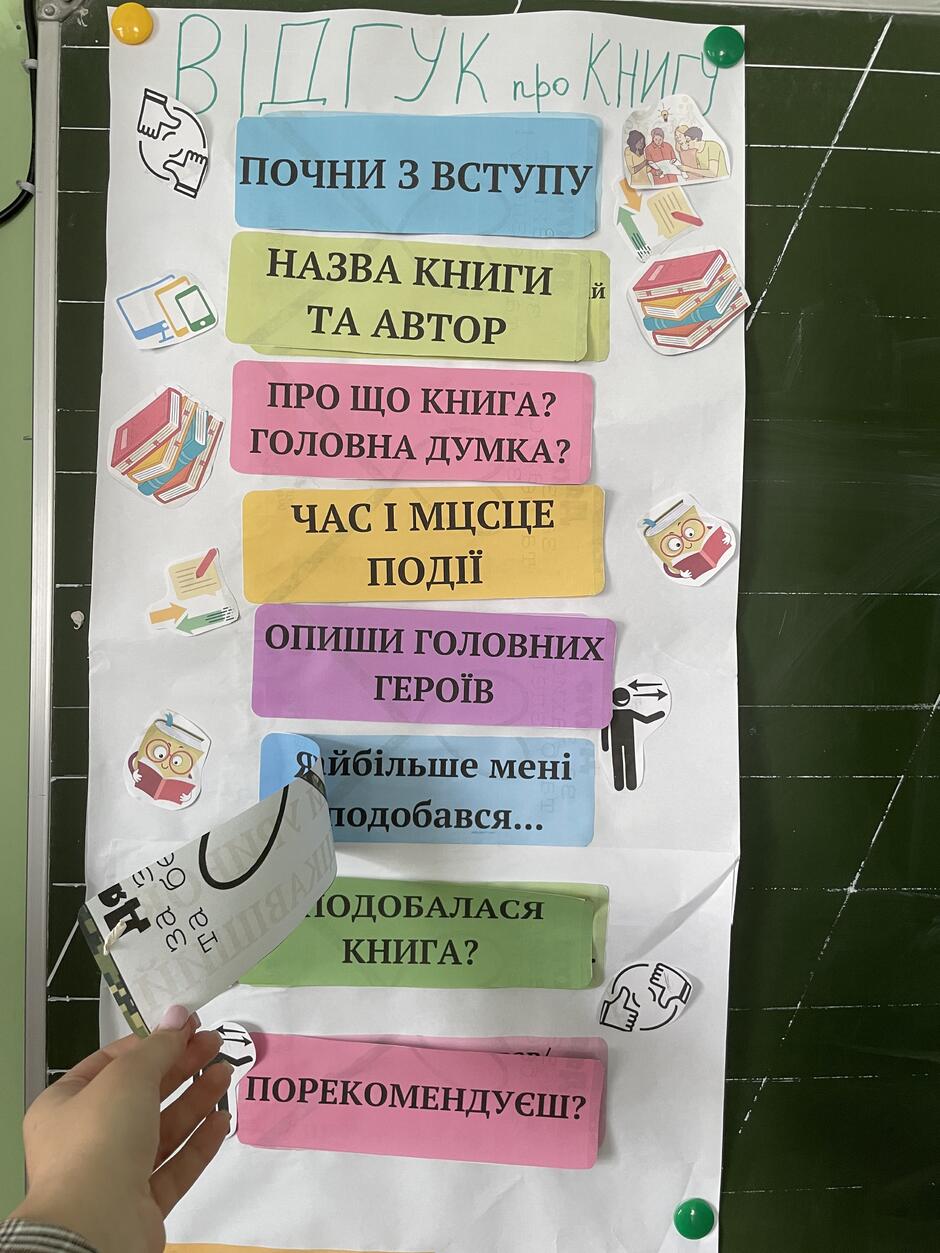 ВІДГУК про КНИГУ
ПОЧНИ З ВСТУПУ
НАЗВА КНИГИ
ТА АВТОР
й
ПРО ЩО КНИГА?
ГОЛОВНА ДУМКА?
ЧАС І МЦСЦЕ
ПОДІЇ
ОПИШИ ГОЛОВНИХ
ГЕРОЇВ
айбільше мені
подобався...
за бе
та
ПОДОБАЛАСЯ
КНИГА?
ПОРЕКОМЕНДУЄШ?